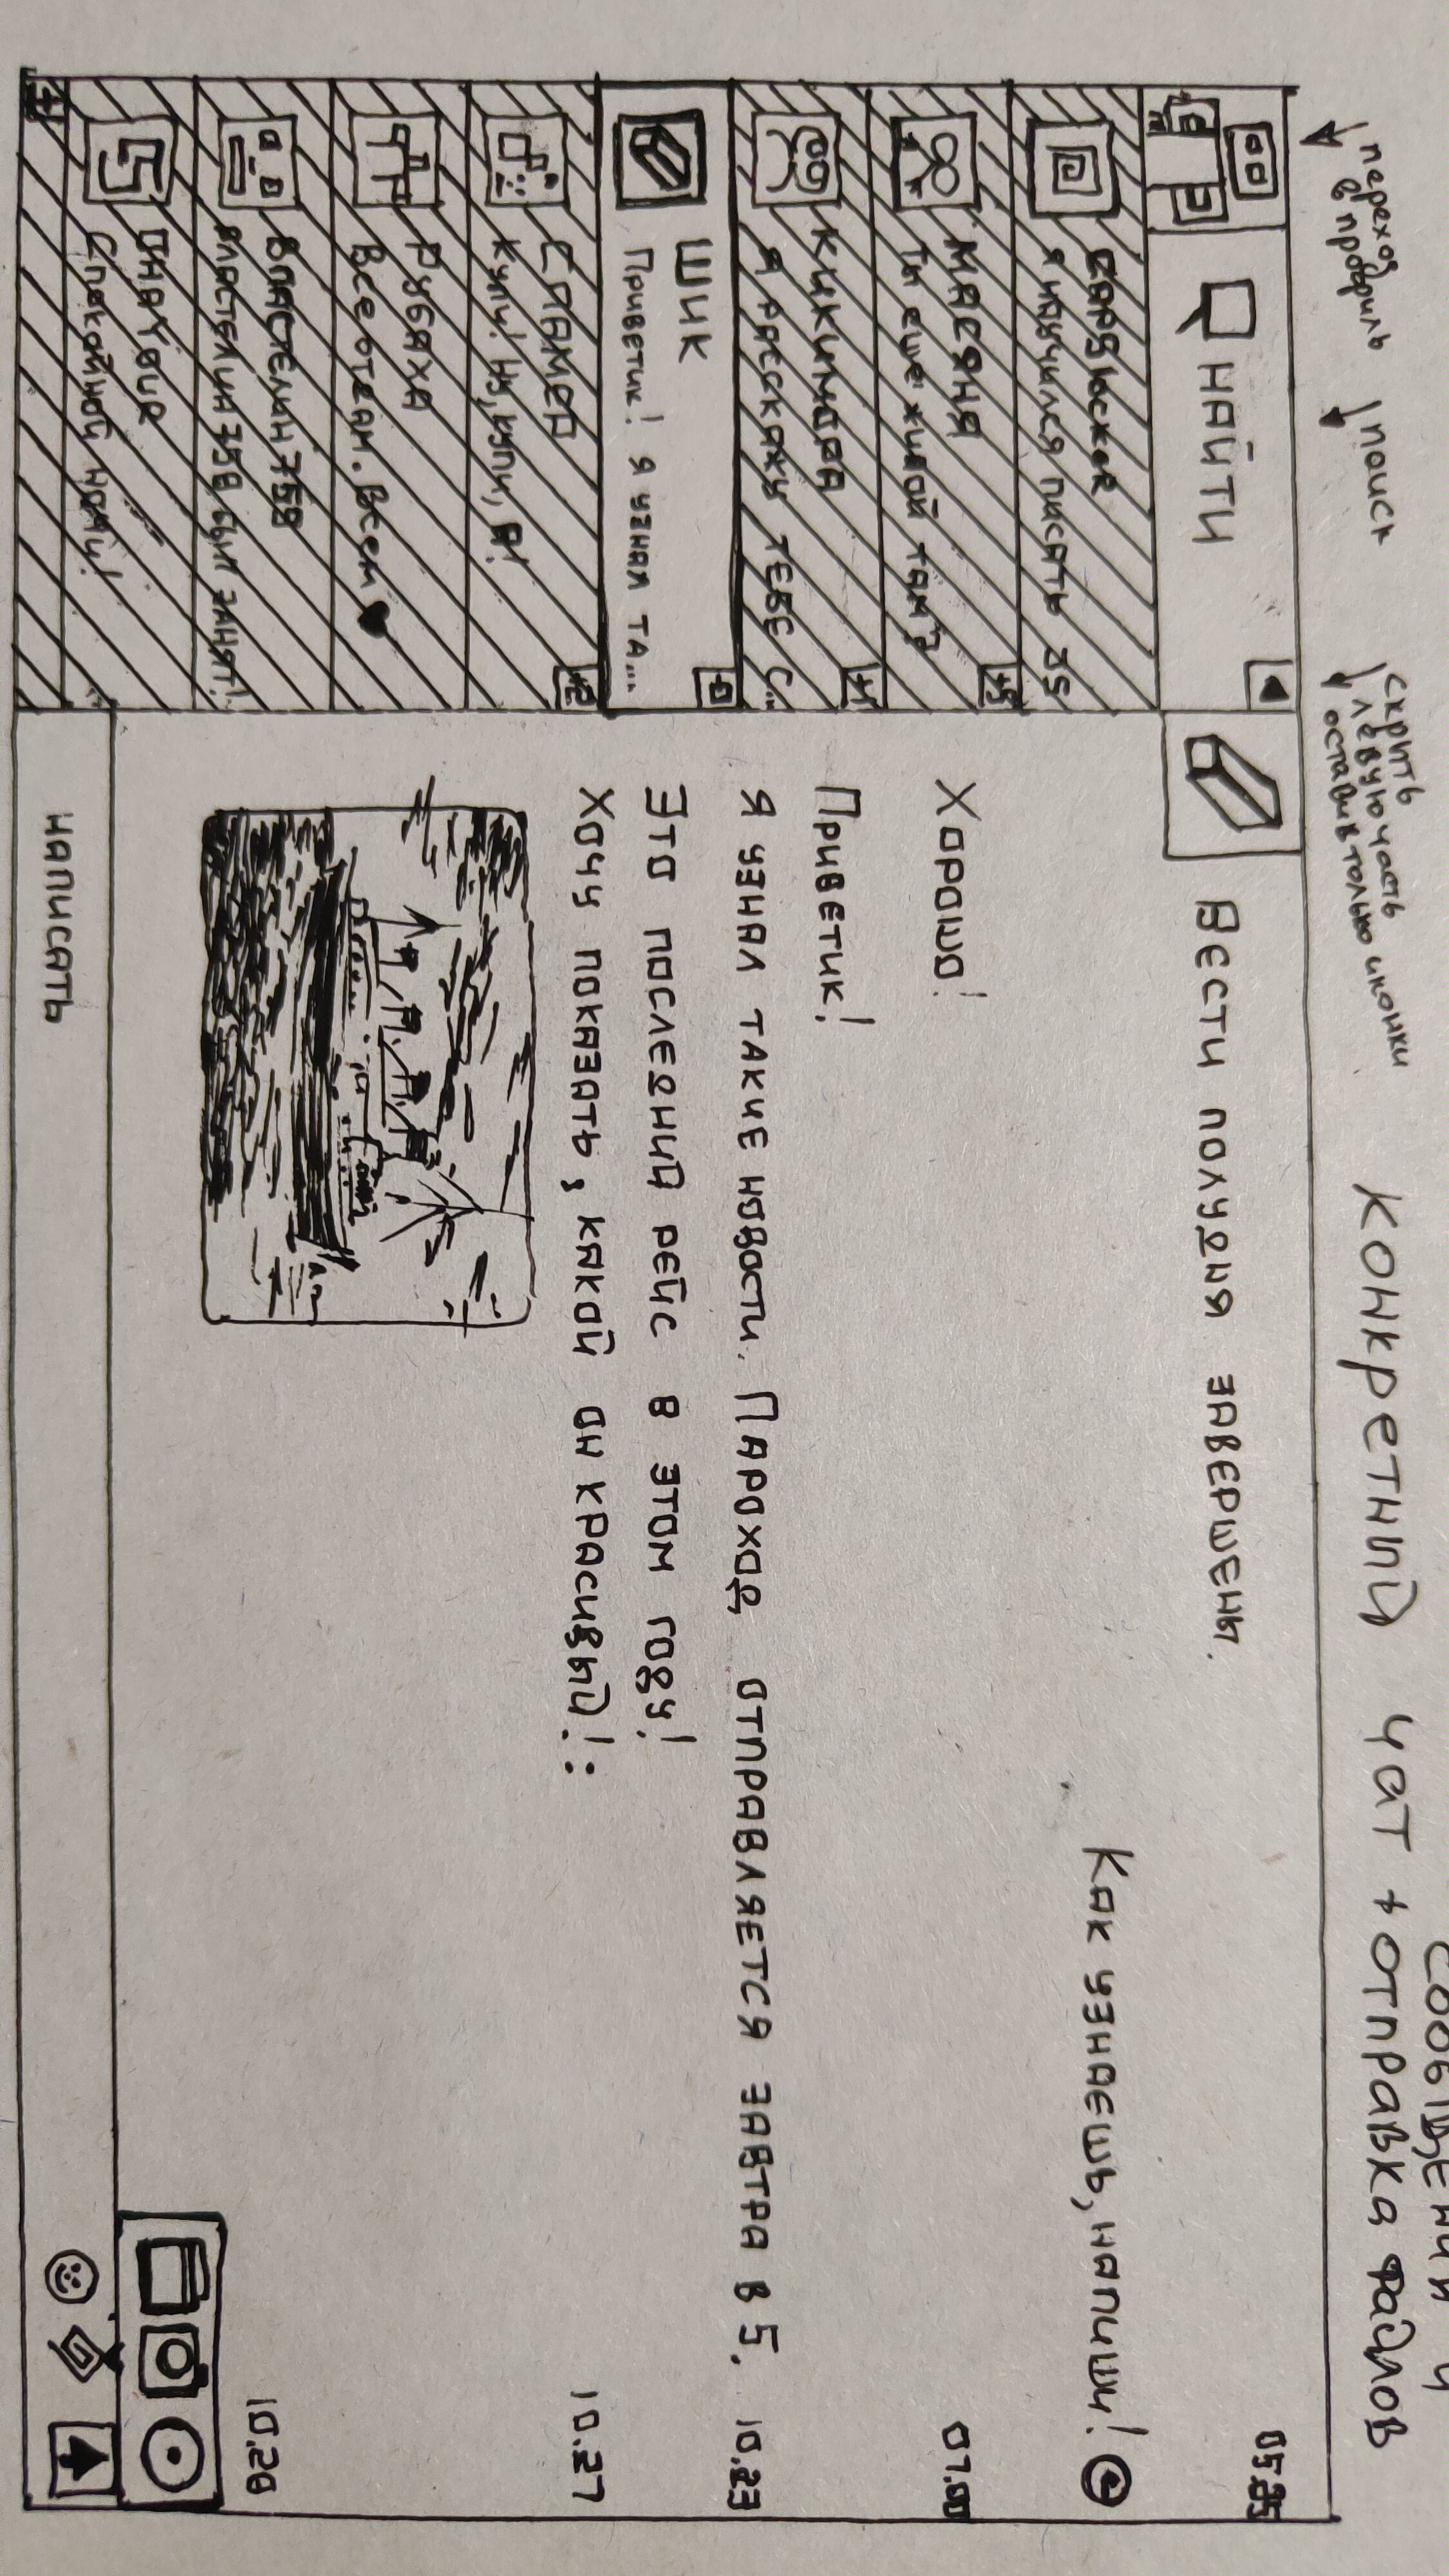 сообщений и
конкретный чат + отправка файлов
переход
в профиль
поиск
скрыть
левую часть
оставив только иконки
НАЙТИ
CAPSlockeR
Я научился писать JS
+5
МАСЯНЯ
Ты еще живой там?
+1
КИКИМОРА
Я РАССКАЖУ ТЕБЕ С...
ШИК
Приветик! Я УЗНАЛ ТА...
+2
СПАМЕР
Купи! Ну, купи, А!
РУБАХА
Все отдам. Всем ♥
ВЛАСТЕЛИН 758
ВЛАСТЕЛИН 758 БЫЛ ЗАНЯТ!
Спокойной ночи!
+
ВЕСТИ ПОЛУДНЯ ЗАВЕРШЕНЫ.
КАК УЗНАЕШЬ, НАПИШИ!
ХОРОШО!
07.00
ПРИВЕТИК!
Я УЗНАЛ ТАКИЕ НОВОСТИ. ПАРОХОД ОТПРАВЛЯЕТСЯ ЗАВТРА В 5. 10.23
ЭТО ПОСЛЕДНИЙ РЕЙС В ЭТОМ ГОДУ!
ХОЧУ ПОКАЗАТЬ, КАКОЙ ОН КРАСИВЫЙ!: 10.27
10.28
НАПИСАТЬ